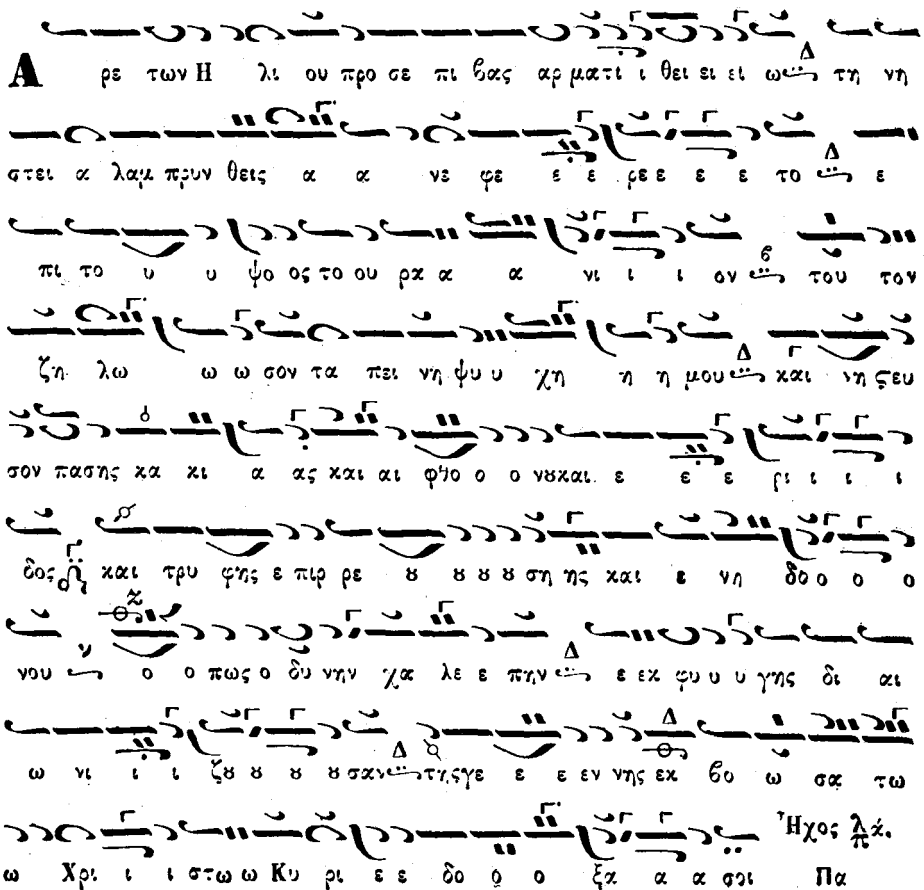 Α ρε των Η λι ου προ σε πι βας αρ ματι ι θει ει ει ω Δ τη νη
στει α λαμ πρυν θεις α α νε φε ε ε ρε ε ε ε το Δ ε
πι το υ υ ψο ος το ου ρα α α νι ι ι ον β του τον
ζη λω ω ω σον τα πει νη ψυ υ χη η η μου Δ και νη ςευ
σον πασης κα κι α ας και αι φθο ο ο νȣ και ε ε ε ρι ι ι ι
δος και τρυ φης ε πιρ ρε ȣ ȣ ȣ ȣ ση ης και ε νη δο ο ο ο
νου ν ο ο πως ο δυ νην χα λε ε πην Δ ε εκ φυ υ υ γης δι αι
ω νι ι ι ζȣ ȣ ȣ ȣ σαν Δ της γε ε ε εν νης εκ βο ω σα τω
ω Χρι ι ι στω ω Κυ ρι ε ε δο ο ο ξα α α σοι Ἦχος λ π ά. Πα